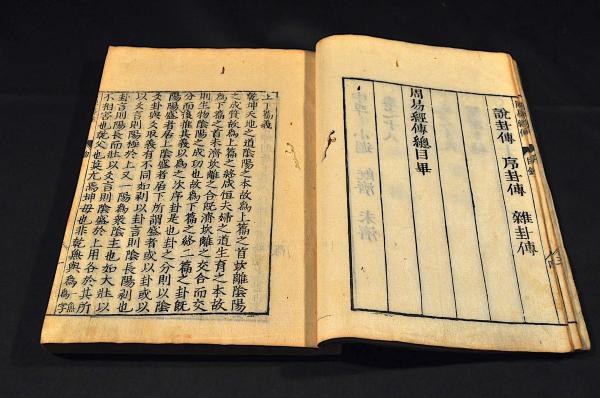 說卦傳 序卦傳 雜卦傳
周易經傳總目畢
上下篇義
乾坤天地之道陰陽之本故為上篇之首坎離陰陽
之成質故為上篇之終咸恒夫婦之道生育之本故
為下篇之首未濟坎離之合既濟坎離之交合而交
則生物陰陽之成功也故為下篇之終二篇之卦既
分而後推其義以為之次序卦是也卦之分則以陰
陽陽盛者居上陰盛者居下所謂盛者或以卦或以
爻卦與爻取義有不同如剥以卦言則陰長陽剥也
以爻言則陽極於上又一陽為衆陰主也如大壯以
卦言則陽長而壯以爻言則陰盛於上用各於其所
不相害也乾父也莫亢焉坤母也非乾無與為一無為字